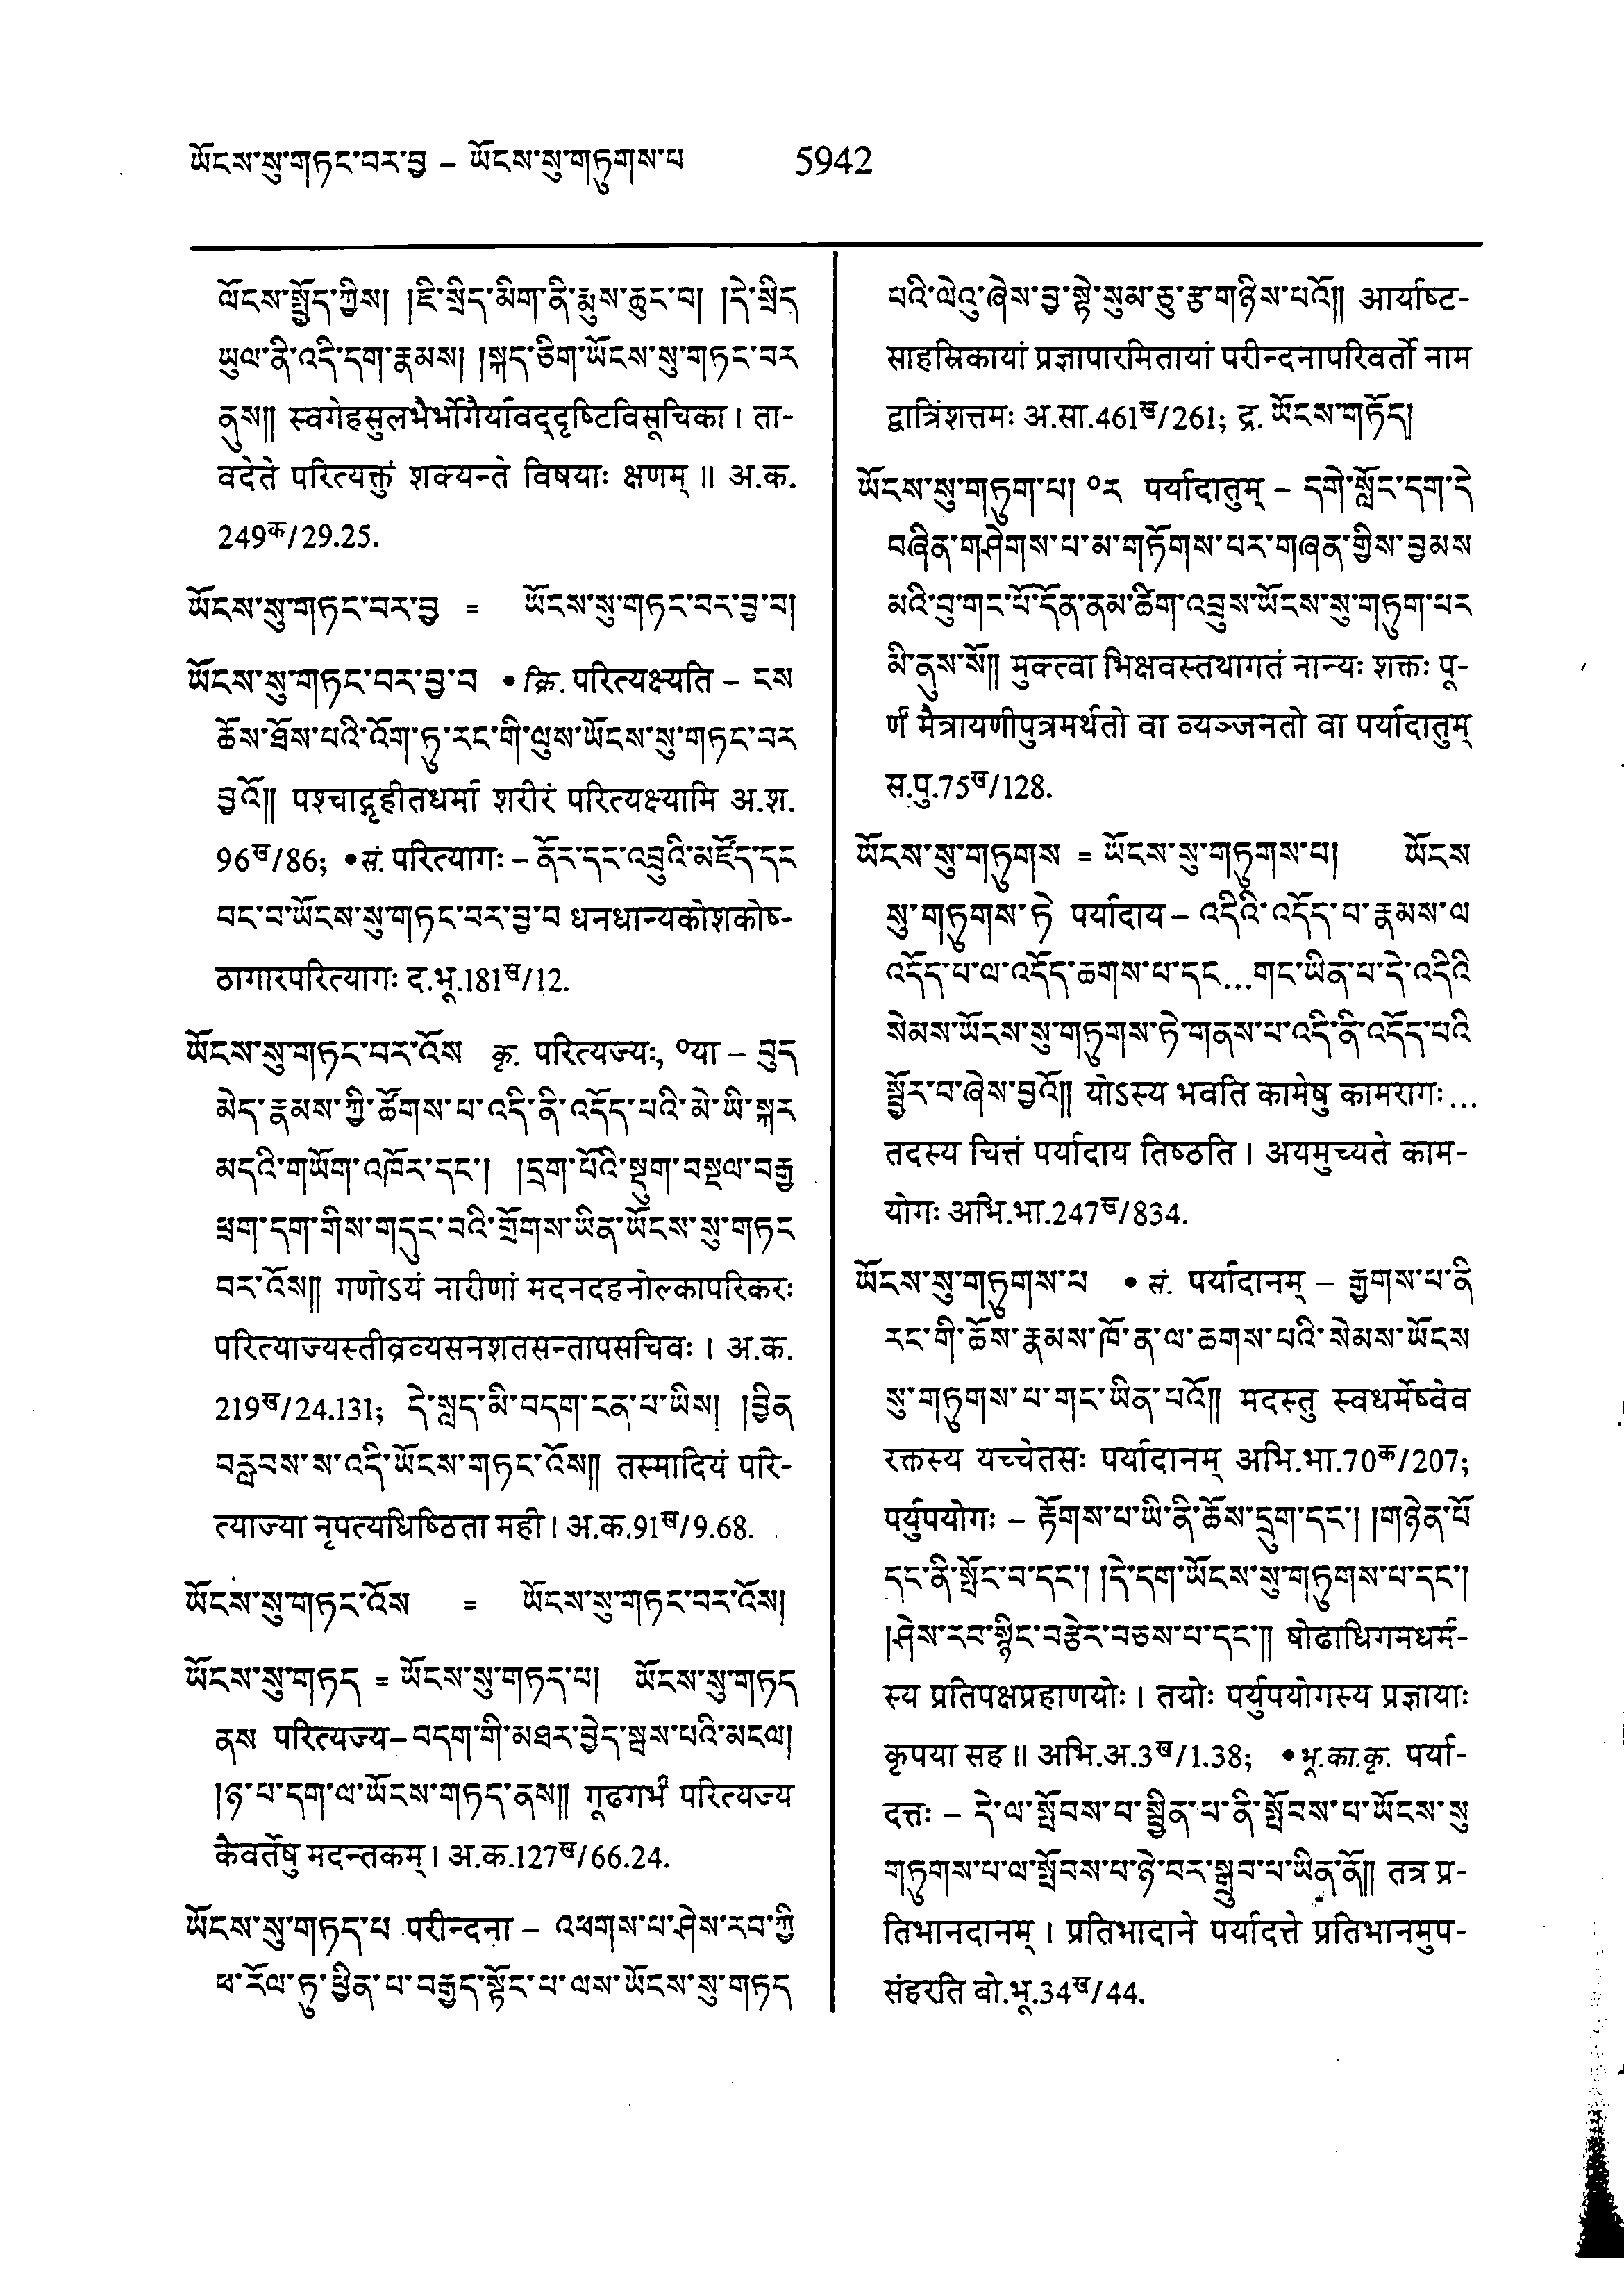 ཡོངས་སུ་གཏང་བར་བྱ – ཡོངས་སུ་གཏུགས་པ 5942
ལོངས་སྤྱོད་ཀྱིས། །ཇི་སྲིད་མིག་ནི་རྨུས་ཆུང་བ། །དེ་སྲིད
ཡུལ་ནི་འདི་དག་རྣམས། །སྐད་ཅིག་ཡོངས་སུ་གཏང་བར
ནུས།། स्वगेहसुलभैर्भोगैर्यावद्दृष्टिविसूचिका । ता-
वदेते परित्यक्तुं शक्यन्ते विषयाः क्षणम् ॥ अ.क.
249क/29.25.
ཡོངས་སུ་གཏང་བར་བྱ = ཡོངས་སུ་གཏང་བར་བྱ་བ།
ཡོངས་སུ་གཏང་བར་བྱ་བ • क्रि. परित्यक्ष्यति – ངས
ཆོས་ཐོས་པའི་འོག་ཏུ་རང་གི་ལུས་ཡོངས་སུ་གཏང་བར
བྱའོ།། पश्चाद्गृहीतधर्मा शरीरं परित्यक्ष्यामि अ.श.
96ख/86; • सं. परित्यागः – ནོར་དང་འབྲུའི་མཛོད་དང
བང་བ་ཡོངས་སུ་གཏང་བར་བྱ་བ धनधान्यकोशकोष-
ठागारपरित्यागः द.भू.181ख/12.
ཡོངས་སུ་གཏང་བར་འོས कृ. परित्यज्यः, ०या – བུད
མེད་རྣམས་ཀྱི་ཚོགས་པ་འདི་ནི་འདོད་པའི་མེ་ཡི་སྐར
མདའི་གཡོག་འཁོར་དང་། །དྲག་པོའི་སྡུག་བསྔལ་བརྒྱ
ཕྲག་དག་གིས་གདུང་བའི་གྲོགས་ཡིན་ཡོངས་སུ་གཏང
བར་འོས།། गणोऽयं नारीणां मदनदहनोल्कापरिकरः
परित्याज्यस्तीव्रव्यसनशतसन्तापसचिवः । अ.क.
219ख/24.131; དེ་སླད་མི་བདག་ངན་པ་ཡིས། །བྱིན
བརླབས་ས་འདི་ཡོངས་གཏང་འོས།། तस्मादियं परि-
त्याज्या नृपत्यधिष्ठिता मही । अ.क.91ख/9.68.
ཡོངས་སུ་གཏང་འོས = ཡོངས་སུ་གཏང་བར་འོས།
ཡོངས་སུ་གཏད = ཡོངས་སུ་གཏད་པ། ཡོངས་སུ་གཏད
ནས परित्यज्य–བདག་གི་མཐར་བྱེད་སྦས་པའི་མངལ།
།ཉ་པ་དག་ལ་ཡོངས་གཏད་ནས།། गूढगर्भं परित्यज्य
कैवर्तेषु मदन्तकम् । अ.क.127ख/66.24.
ཡོངས་སུ་གཏད་པ परीन्दना – འཕགས་པ་ཤེས་རབ་ཀྱི
ཕ་རོལ་ཏུ་ཕྱིན་པ་བརྒྱད་སྟོང་པ་ལས་ཡོངས་སུ་གཏད
པའི་ལེའུ་ཞེས་བྱ་སྟེ་སུམ་ཅུ་རྩ་གཉིས་པའོ།། आर्याष्ट-
साहस्रिकायां प्रज्ञापारमितायां परीन्दनापरिवर्तो नाम
द्वात्रिंशत्तमः अ.सा.461ख/261; द्र. ཡོངས་གཏོད།
ཡོངས་སུ་གཏུག་པ། ०ར पर्यादातुम् – དགེ་སློང་དག་དེ
བཞིན་གཤེགས་པ་མ་གཏོགས་པར་གཞན་གྱིས་བྱམས
མའི་བུ་གང་པོ་དོན་ནམ་ཚིག་འབྲུས་ཡོངས་སུ་གཏུག་པར
མི་ནུས་སོ།། मुक्त्वा भिक्षवस्तथागतं नान्यः शक्तः पू-
र्णं मैत्रायणीपुत्रमर्थतो वा व्यञ्जनतो वा पर्यादातुम्
स.पु.75ख/128.
ཡོངས་སུ་གཏུགས = ཡོངས་སུ་གཏུགས་པ། ཡོངས
སུ་གཏུགས་ཏེ पर्यादाय – འདིའི་འདོད་པ་རྣམས་ལ
འདོད་པ་ལ་འདོད་ཆགས་པ་དང...གང་ཡིན་པ་དེ་འདིའི
སེམས་ཡོངས་སུ་གཏུགས་ཏེ་གནས་པ་འདི་ནི་འདོད་པའི
སྦྱོར་བ་ཞེས་བྱའོ།། योऽस्य भवति कामेषु कामरागः...
तदस्य चित्तं पर्यादाय तिष्ठति । अयमुच्यते काम-
योगः अभि.भा.247ख/834.
ཡོངས་སུ་གཏུགས་པ • सं. पर्यादानम् – རྒྱགས་པ་ནི
རང་གི་ཆོས་རྣམས་ཁོ་ན་ལ་ཆགས་པའི་སེམས་ཡོངས
སུ་གཏུགས་པ་གང་ཡིན་པའོ།། मदस्तु स्वधर्मेष्वेव
रक्तस्य यच्चेतसः पर्यादानम् अभि.भा.70क/207;
पर्युपयोगः – རྟོགས་པ་ཡི་ནི་ཆོས་དྲུག་དང་། །གཉེན་པོ
དང་ནི་སྤོང་བ་དང་། །དེ་དག་ཡོངས་སུ་གཏུགས་པ་དང་།
།ཤེས་རབ་སྙིང་བརྩེར་བཅས་པ་དང་།། षोढाधिगमधर्म-
स्य प्रतिपक्षप्रहाणयोः । तयोः पर्युपयोगस्य प्रज्ञायाः
कृपया सह ॥ अभि.अ.3ख/1.38; • भू.का.कृ. पर्या-
दत्तः – དེ་ལ་སྤོབས་པ་སྦྱིན་པ་ནི་སྤོབས་པ་ཡོངས་སུ
གཏུགས་པ་ལ་སྤོབས་པ་ཉེ་བར་སྒྲུབ་པ་ཡིན་ནོ།། तत्र प्र-
तिभानदानम् । प्रतिभादाने पर्यादत्ते प्रतिभानमुप-
संहरति बो.भू.34ख/44.